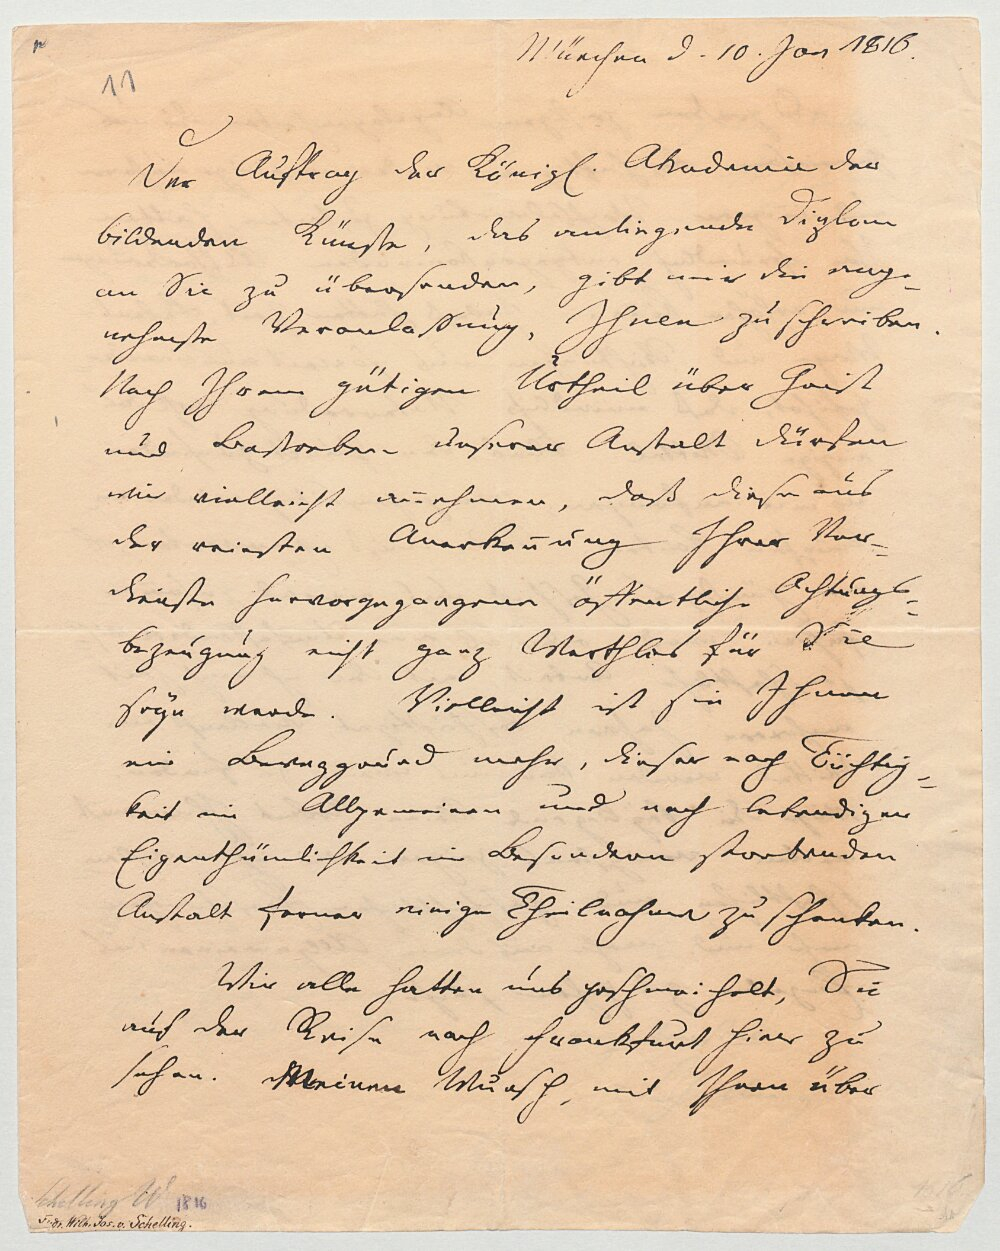 11
München d. 10. Jan 1816.
Der Auftrag der Königl. Akademie der
bildenden Künste, das anliegende Diplom
an Sie zu übersenden, gibt mir die ange-
nehmste Veranlaßung, Ihnen zu schreiben.
Nach Ihrem gütigen Urtheil über Geist
und Bestreben unserer Anstalt dürfen
wir vielleicht annehmen, daß diese aus
der reinsten Anerkennung Ihrer Ver-
dienste hervorgegangene öffentliche Achtungs-
bezeugung nicht ganz Werthlos für Sie
seyn werde. Vielleicht ist sie Ihnen
ein Beweggrund mehr, dieser nach Tüchtig-
keit im Allgemeinen und nach lebendiger
Eigenthümlichkeit im Besondern strebenden
Anstalt ferner einige Theilnahme zu schenken.
Wir alle hatten uns geschmeichelt, Sie
auf der Reise nach Frankfurt hier zu
sehen. Meinen Wunsch, mit Ihnen über
Schelling W 1816
Fr. Wilh. Jos. v. Schelling.